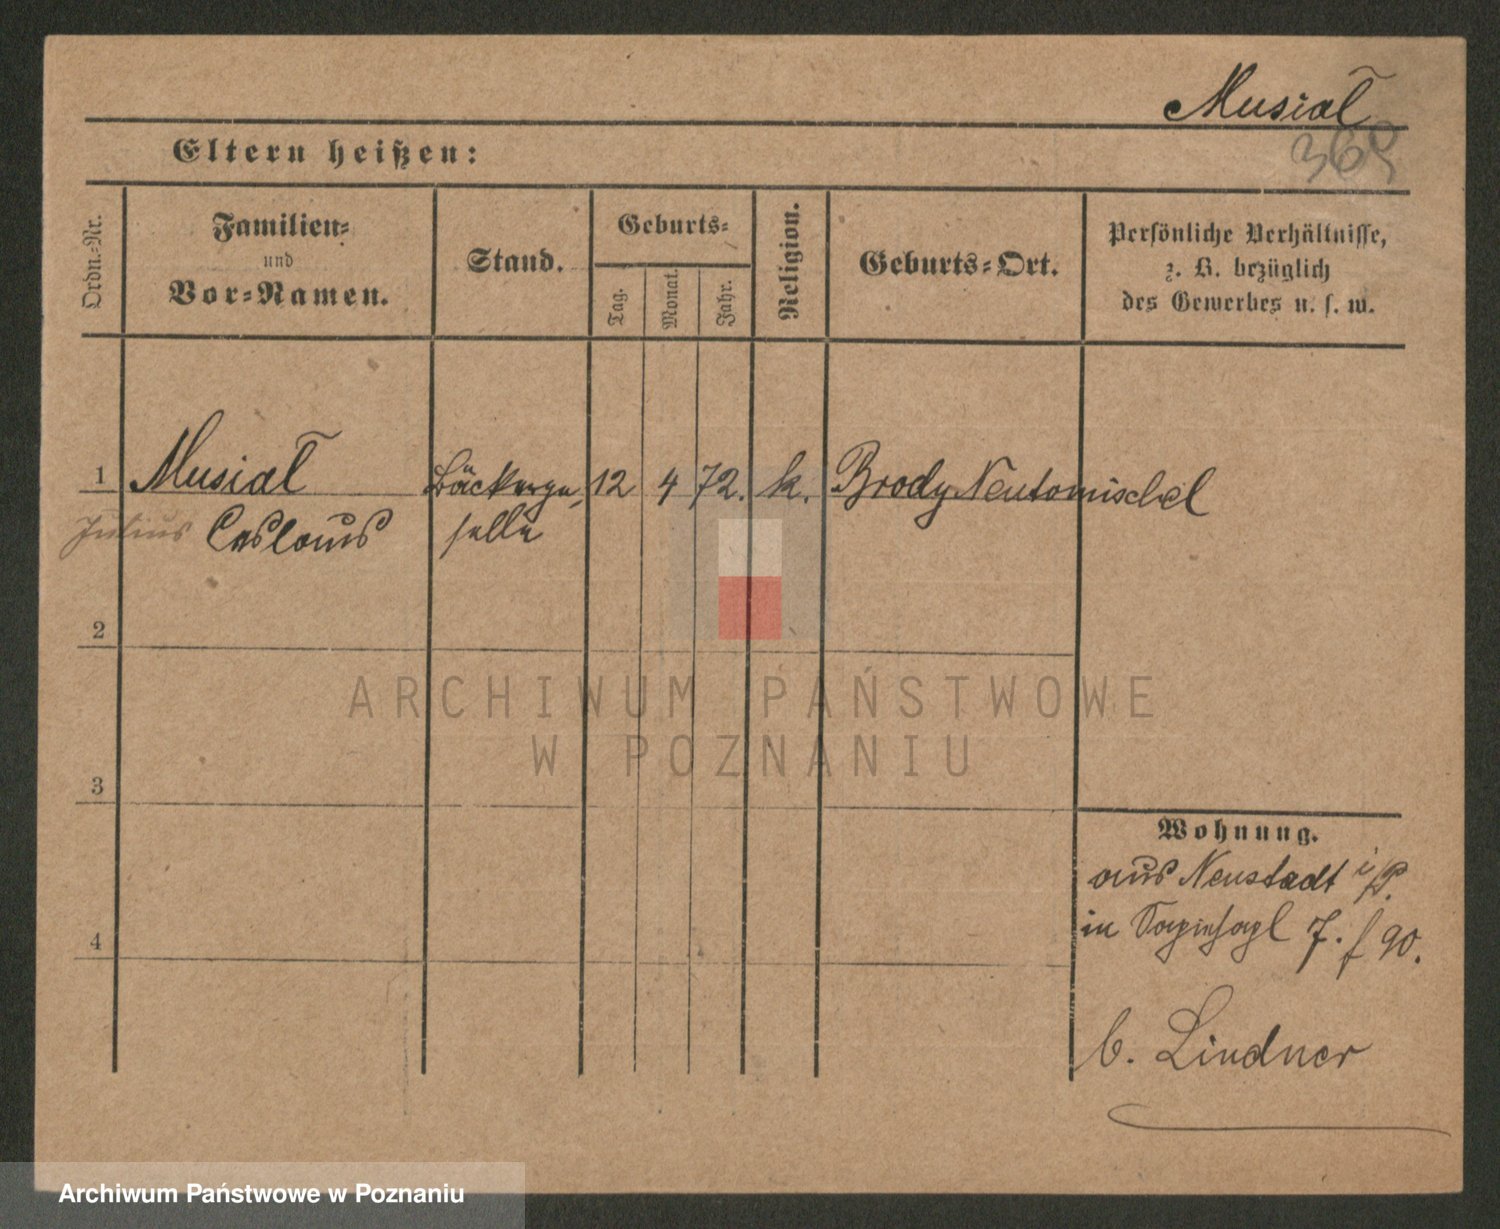 Musiał
369
Eltern heißen:
Ordn.=Nr.
Familien=
und
Vor=Namen.
Stand.
Geburts=
Tag.
Monat.
Jahr.
Religion.
Geburts=Ort.
Persönliche Verhältnisse,
z. B. bezüglich
des Gewerbes u. s. w.
1 Musiał Bäckerge= 12 4 72. k. Brody Neutomischel
Julius Ceslaus selle
2
3
4
ARCHIWUM PAŃSTWOWE
W POZNANIU
Wohnung.
aus Neustadt i/P.
in 7. 90.
b. Lindner
Archiwum Państwowe w Poznaniu